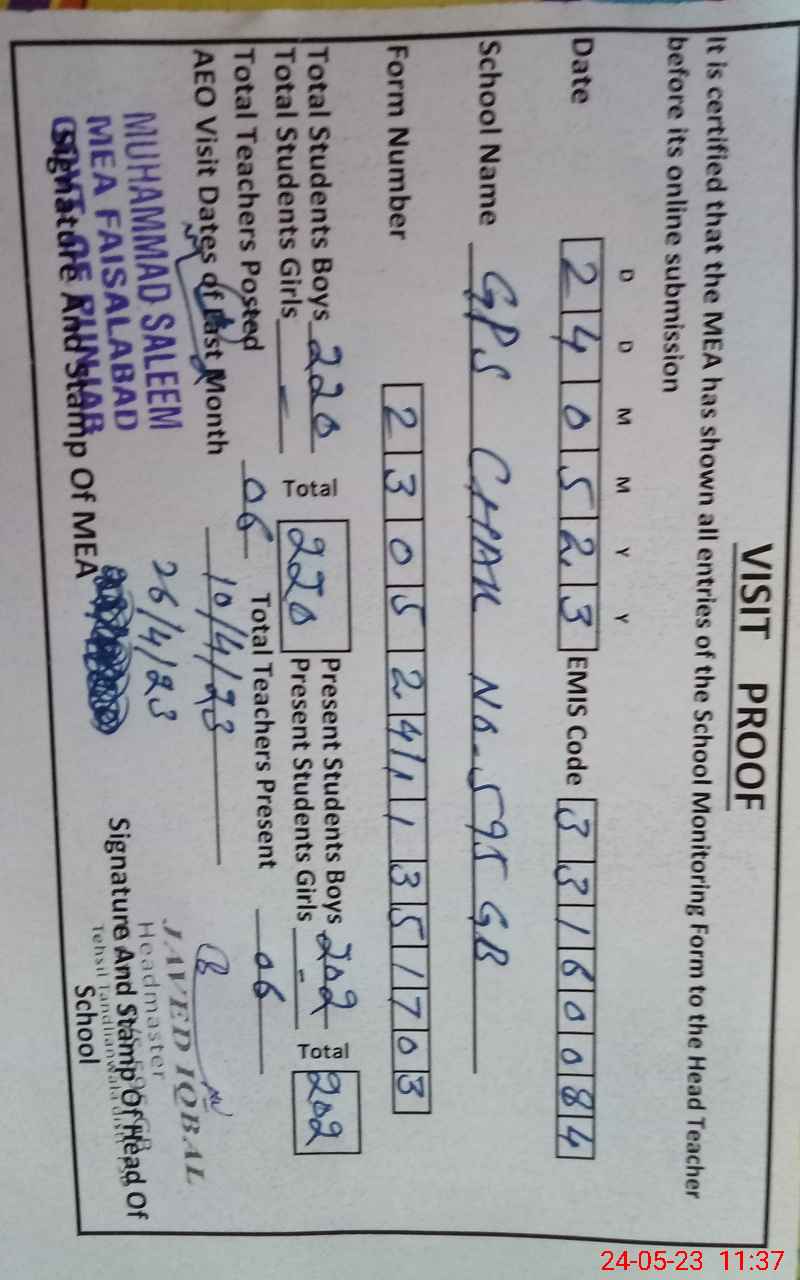 VISIT PROOF
It is certified that the MEA has shown all entries of the School Monitoring Form to the Head Teacher
before its online submission
D D M M Y Y
Date 2 4 0 5 2 3 EMIS Code 3 3 1 6 0 0 8 4
School Name GPS CHAK No. 595 GB
Form Number 2 3 0 5 2 4 1 1 3 5 1 7 0 3
Total Students Boys 220 Total 220 Present Students Boys 202 Total 202
Total Students Girls - Present Students Girls -
Total Teachers Posted 06 Total Teachers Present 06
AEO Visit Dates of Last Month 10/4/23
26/4/23
MUHAMMAD SALEEM
MEA FAISALABAD
GOVT OF PUNJAB
Signature And Stamp Of MEA
JAVED IQBAL
Headmaster
Tehsil Tandlianwala
Signature And Stamp Of Head Of
School
24-05-23 11:37